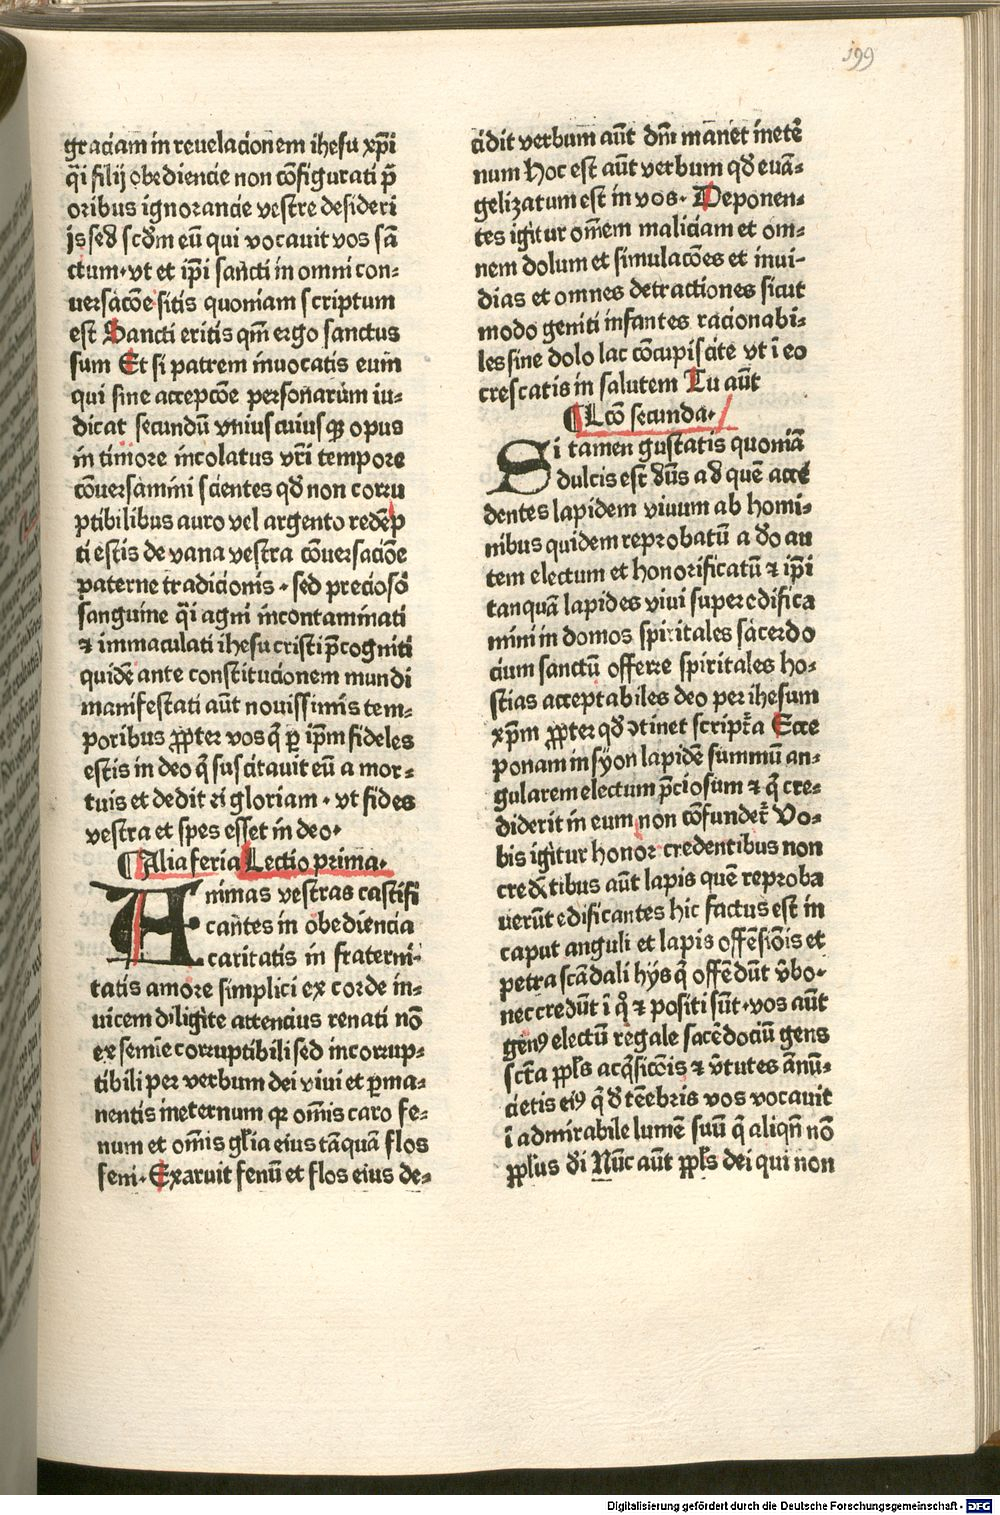 199
graciam in reuelacionem ihesu xp̄i
q̄i filij obediencie non cōfigurati p̄
oribus ignorancie vestre desideri
js sed scd̄m eū qui vocauit vos sā
ctum · vt et ip̄i sancti in omni con-
uersacōe sitis quoniam scriptum
est Sancti eritis qm̄ ergo sanctus
sum Et si patrem inuocatis eum
qui sine accepcōe personarum iu-
dicat secundū vniuscuiusqꝫ opus
in timore incolatus vr̄i tempore
cōuersamini scientes qd̄ non corru
ptibilibus auro vel argento redēp
ti estis de vana vestra cōuersaciōe
paterne tradicionis · sed precioso
sanguine q̄i agni incontaminati
⁊ immaculati ihesu cristi p̄cogniti
quidē ante constitucionem mundi
manifestati aūt nouissimis tem-
poribus ꝓpter vos q̄ ꝑ ip̄m fideles
estis in deo q̄ suscitauit eū a mor-
tuis et dedit ei gloriam · vt fides
vestra et spes esset in deo ·
¶ Alia feria Lectio prima ·
Animas vestras castifi
cantes in obediencia
caritatis in fraterni-
tatis amore simplici ex corde in-
uicem diligite attencius renati nō
ex semīe corruptibili sed incorrup-
tibili per verbum dei viui et ꝑma-
nentis ineternum qꝛ om̄is caro fe-
num et om̄is gl̄ia eius tāquā flos
feni · Exaruit fenū et flos eius de-
cidit verbum aūt dn̄i manet inetē
num Hoc est aūt verbum qd̄ euā-
gelizatum est in vos · Deponen-
tes igitur om̄em maliciam et om-
nem dolum et simulacōes et inui-
dias et omnes detractiones sicut
modo geniti infantes racionabi-
les sine dolo lac cōcupiscite vt ī eo
crescatis in salutem Tu aūt
¶ Lcō secunda ·
Si tamen gustatis quoniā
dulcis est dūs ad quē acce
dentes lapidem viuum ab homi-
nibus quidem reprobatū a do au
tem electum et honorificatū ⁊ ip̄i
tanquā lapides viui superedifica
mini in domos spiritales sacerdo
cium sanctū offerre spiritales ho-
stias acceptabiles deo per ihesum
xp̄m ꝓpter qd̄ ꝯtinet script̄a Ecce
ponam in syon lapidē summū an-
gularem electum p̄ciosum ⁊ q̄ cre-
diderit in eum non cōfundet̄ Vo-
bis igitur honor credentibus non
credētibus aūt lapis quē reproba
uerūt edificantes hic factus est in
caput anguli et lapis offēsiōis et
petra scādali hijs q̄ offēdūt v̄bo ·
nec credūt ī q̊ ⁊ positi sūt · vos aūt
genꝰ electū regale sacēdociū gens
sct̄a ppl̄s acq̄sicōis ⁊ v̄tutes ānū-
cietis eiꝰ q̄ d̄ tēebris vos vocauit
ī admirabile lumē suū q̄ aliqn̄ nō
ppl̄us d̄i Nūc aūt ppl̄s dei qui non
Digitalisierung gefördert durch die Deutsche Forschungsgemeinschaft - DFG